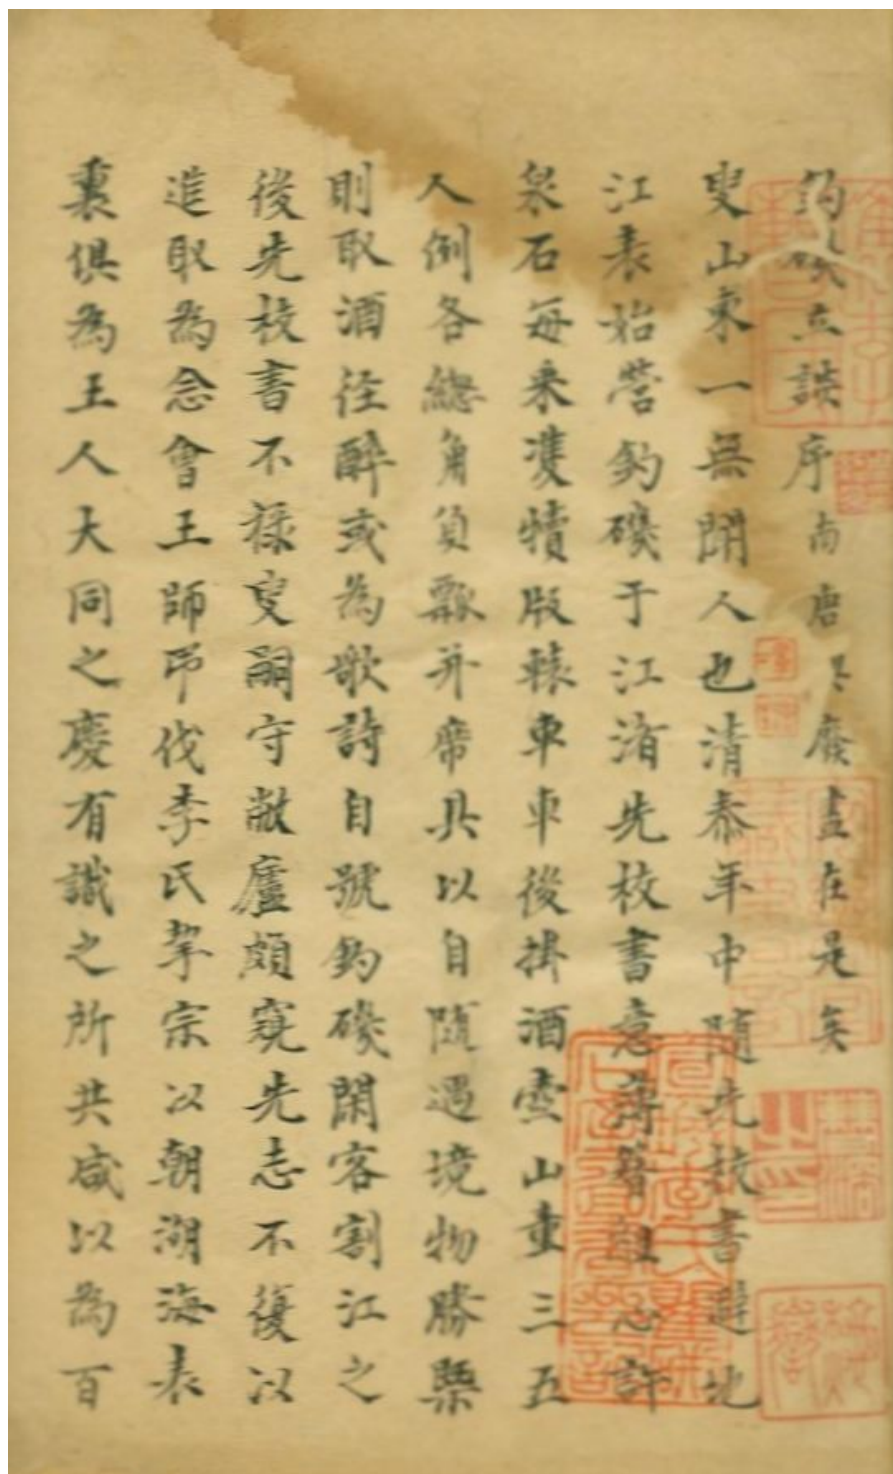 釣磯立談序南唐興廢盡在是矣
叟山東一無聞人也清泰年中隨先校書避地
江表始營釣磯于江渚先校書意薄簪組心許
泉石每乘雙犢版轅車車後掛酒壺山童三五
人例各總角負瓢并席具以自隨遇境物勝槩
則取酒徑醉或為歌詩自號釣磯閑客割江之
後先校書不祿叟嗣守敝廬頗窺先志不復以
進取為念會王師弔伐李氏挈宗以朝湖海表
裏俱為王人大同之慶有識之所共咸以為百